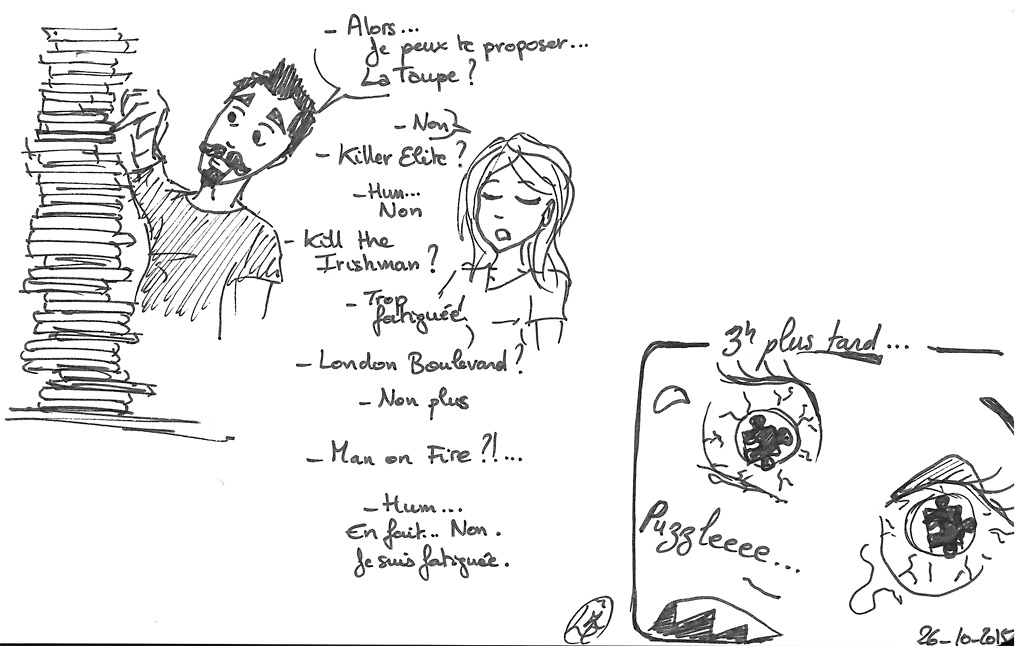 - Alors...
Je peux te proposer...
La Taupe ?
- Non
- Killer Elite ?
- Hum...
Non
- Kill the
Irishman ?
- Trop
fatiguée!
- London Boulevard ?
- Non plus
- Man on Fire ?!...
- Hum...
En fait... Non.
Je suis fatiguée.
3h plus tard...
Puzzleeee...
26-10-2015